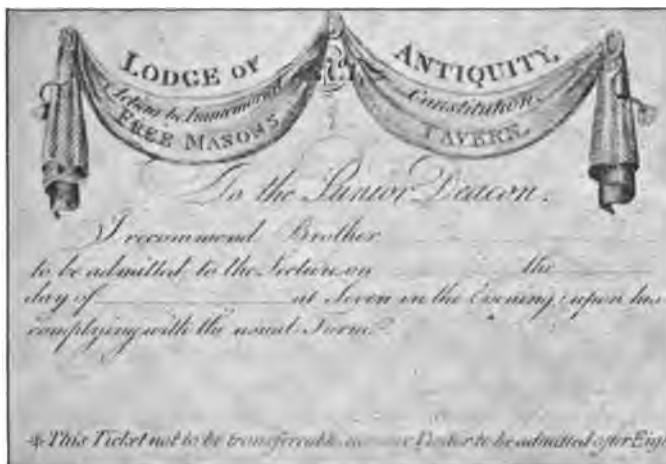 LODGE OF ANTIQUITY,
Acting by Immemorial Constitution.
FREE MASONS TAVERN.
To the Junior Deacon.
I recommend Brother
to be admitted to the Lecture on the
day of at Seven in the Evening, upon his
complying with the usual Form.
This Ticket not to be transferrable, to be admitted after Eigh